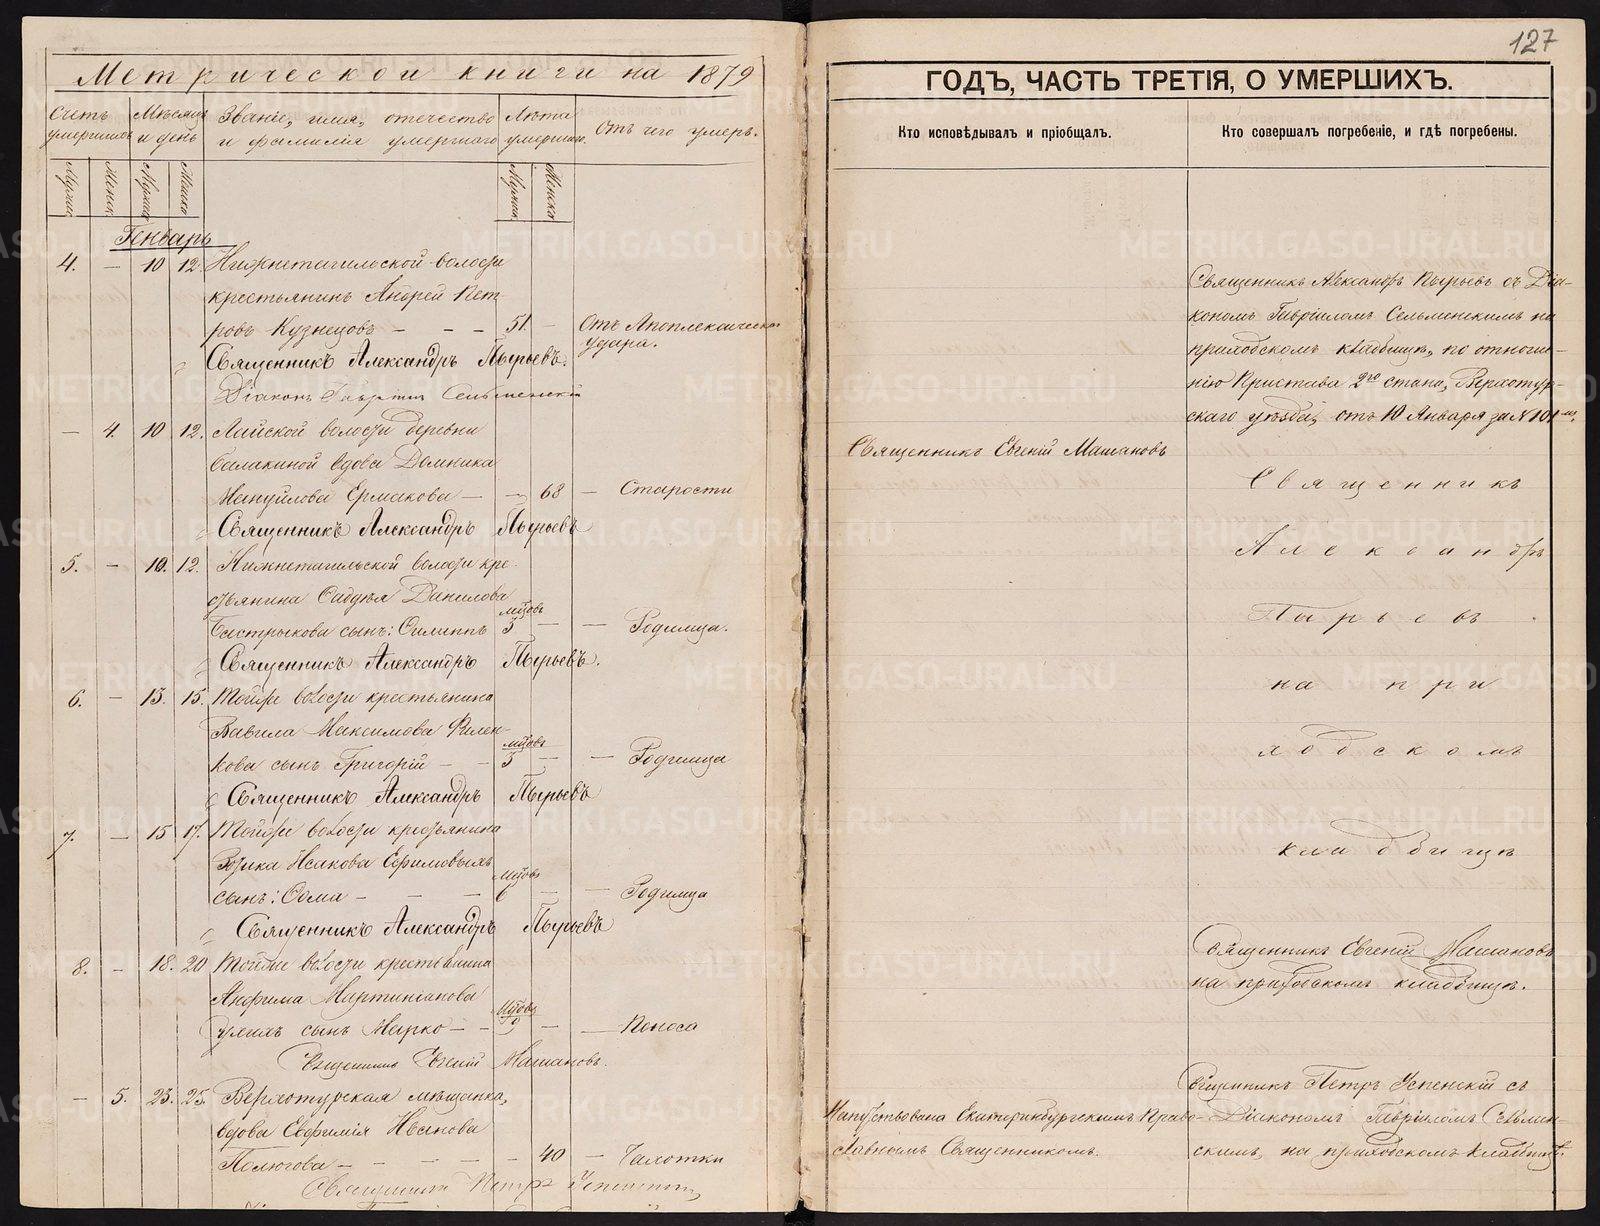 Метрической книги на 1879
Счетъ умершихъ
Мѣсяцъ и день
Званіе, имя, отечество и фамилія умершаго
Лѣта умершаго
Отъ чего умеръ.
Мужск. Женск. Мужск. Женск.
Генварь
4. — 10 12. Нижнетагильской волости
крестьянинъ Андрей Пет-
ровъ Кузнецовъ — — — 51. — Отъ Апоплексическаго
удара.
Священникъ Александръ Пырьевъ.
Діаконъ Гавріилъ Сельменскій
— 4. 10 12. Лайской волости деревни
Балакиной вдова Домника
Мануйлова Ермакова — — 68 — Старости
Священникъ Александръ Пырьевъ
5. — 10. 12. Нижнетагильской волости кре-
стьянина Данилова
сынъ: Филиппъ мѣсцовъ 3 — — Родимца.
Священникъ Александръ Пырьевъ.
6. — 13. 15. Тойже волости крестьянина
Вавила Максимова Филен-
кова сынъ Григорій — — мѣсцовъ 5 — — Родимца
Священникъ Александръ Пырьевъ
7. — 15 17. Тойже волости крестьянина
Исакова Ефимовыхъ
сынъ: Ѳома — — — мѣсцовъ 6 — — Родимца
Священникъ Александръ Пырьевъ
8. — 18. 20 Тойже волости крестьянина
Анфима Мартиніанова
сынъ Марко — — — — Поноса
Священникъ Евгеній Машановъ.
— 5. 23. 25. Верхотурская мѣщанка,
вдова Евфимія Иванова
Полюгова — — — — — 40 — Чахотки
Священникъ Петръ Успенскій
127
ГОДЪ, ЧАСТЬ ТРЕТІЯ, О УМЕРШИХЪ.
Кто исповѣдывалъ и пріобщалъ.
Кто совершалъ погребеніе, и гдѣ погребены.
Священникъ Александръ Пырьевъ съ Діа-
кономъ Гавріиломъ Сельменскимъ на
приходскомъ кладбищѣ, по отноше-
нію Пристава 2го стана, Верхотур-
скаго уѣзда, отъ 10 Января за № 101мъ.
Священникъ Евгеній Машановъ
Священникъ
Александръ
Пырьевъ
на при
ходскомъ
кладбищѣ
Священникъ Евгеній Машановъ
на приходскомъ кладбищѣ.
Священникъ Петръ Успенскій съ
Напутствована Екатеринбургскимъ Право-
Діакономъ Гавріиломъ Сельмен-
славнымъ Священникомъ.
скимъ, на приходскомъ кладбищѣ.
METRIKI.GASO-URAL.RU